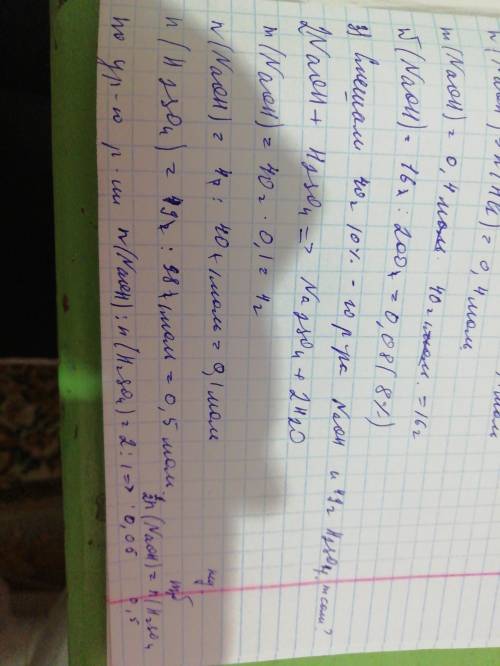 m(NaOH) = 0,4 моль · 40г/моль = 16г
W(NaOH) = 16г : 200г = 0,08 (8%)
3) Смешали 40г 10% - го р-ра NaOH и 49г H2SO4, m соли?
2NaOH + H2SO4 => Na2SO4 + 2H2O
m(NaOH) = 40г · 0,1 = 4г
n(NaOH) = 4г : 40г/моль = 0,1 моль
n(H2SO4) = 49г : 98г/моль = 0,5 моль
n(NaOH) = n(H2SO4
по ур-ю р-ии n(NaOH) : n(H2SO4) = 2 : 1 => 0,05 0,5